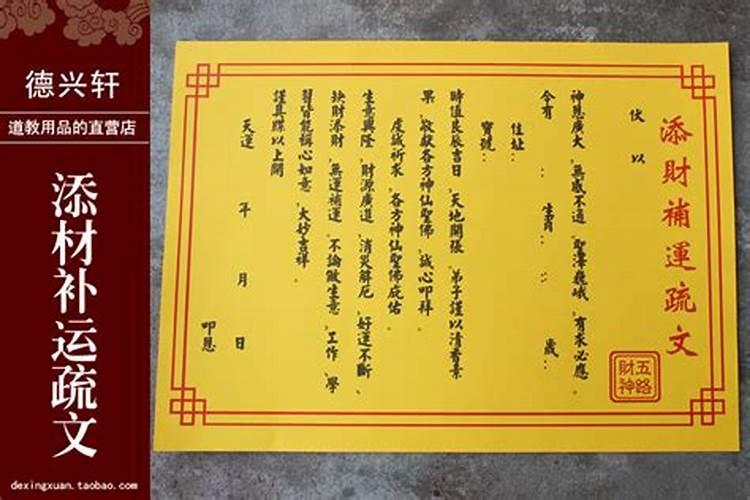 德兴轩
道教用品的直营店
添材补运疏文
dexingxuan.taobao.com
添財補運疏文
五路
財神
伏以
神恩廣大、無感不通、聖澤巍峨、有求必應。
今有 : 生肖: : 歲、
住址:
寶號:
時值良辰吉日、天地開張、弟子謹以清香素
果、敬獻各方神仙聖佛、誠心叩拜
虔誠祈求、各方神仙聖佛庇佑。
生意興隆、財源廣進、消災解厄、好運不斷、
缺財添財、無運補運、不論做生意、工作、學
習皆能稱心如意、大妙吉祥。
謹具牒以上聞
天運 年 月 日
叩恩